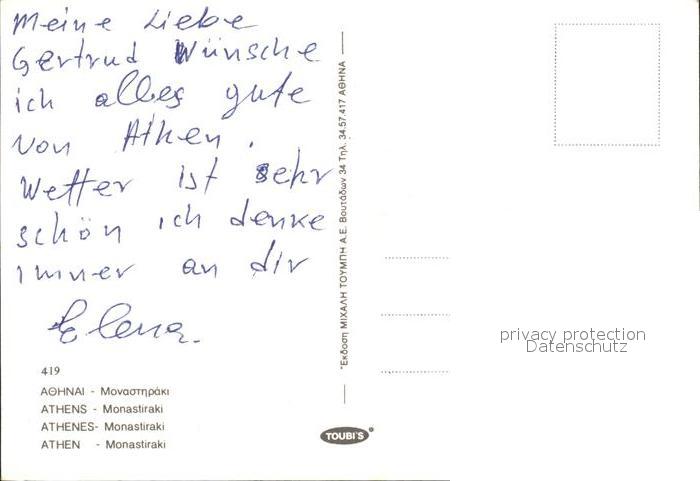 Meine Liebe
Gertrud Wünsche
ich alles gute
von Athen.
Wetter ist sehr
schön ich denke
immer an dir
Elena.
419
ΑΘΗΝΑΙ - Μοναστηράκι
ATHENS - Monastiraki
ATHENES- Monastiraki
ATHEN - Monastiraki
Ἔκδοση ΜΙΧΑΛΗ ΤΟΥΜΠΗ Α.Ε. Βουτάδων 34 Τηλ. 34.57.417 ΑΘΗΝΑ
TOUBI'S
privacy protection
Datenschutz